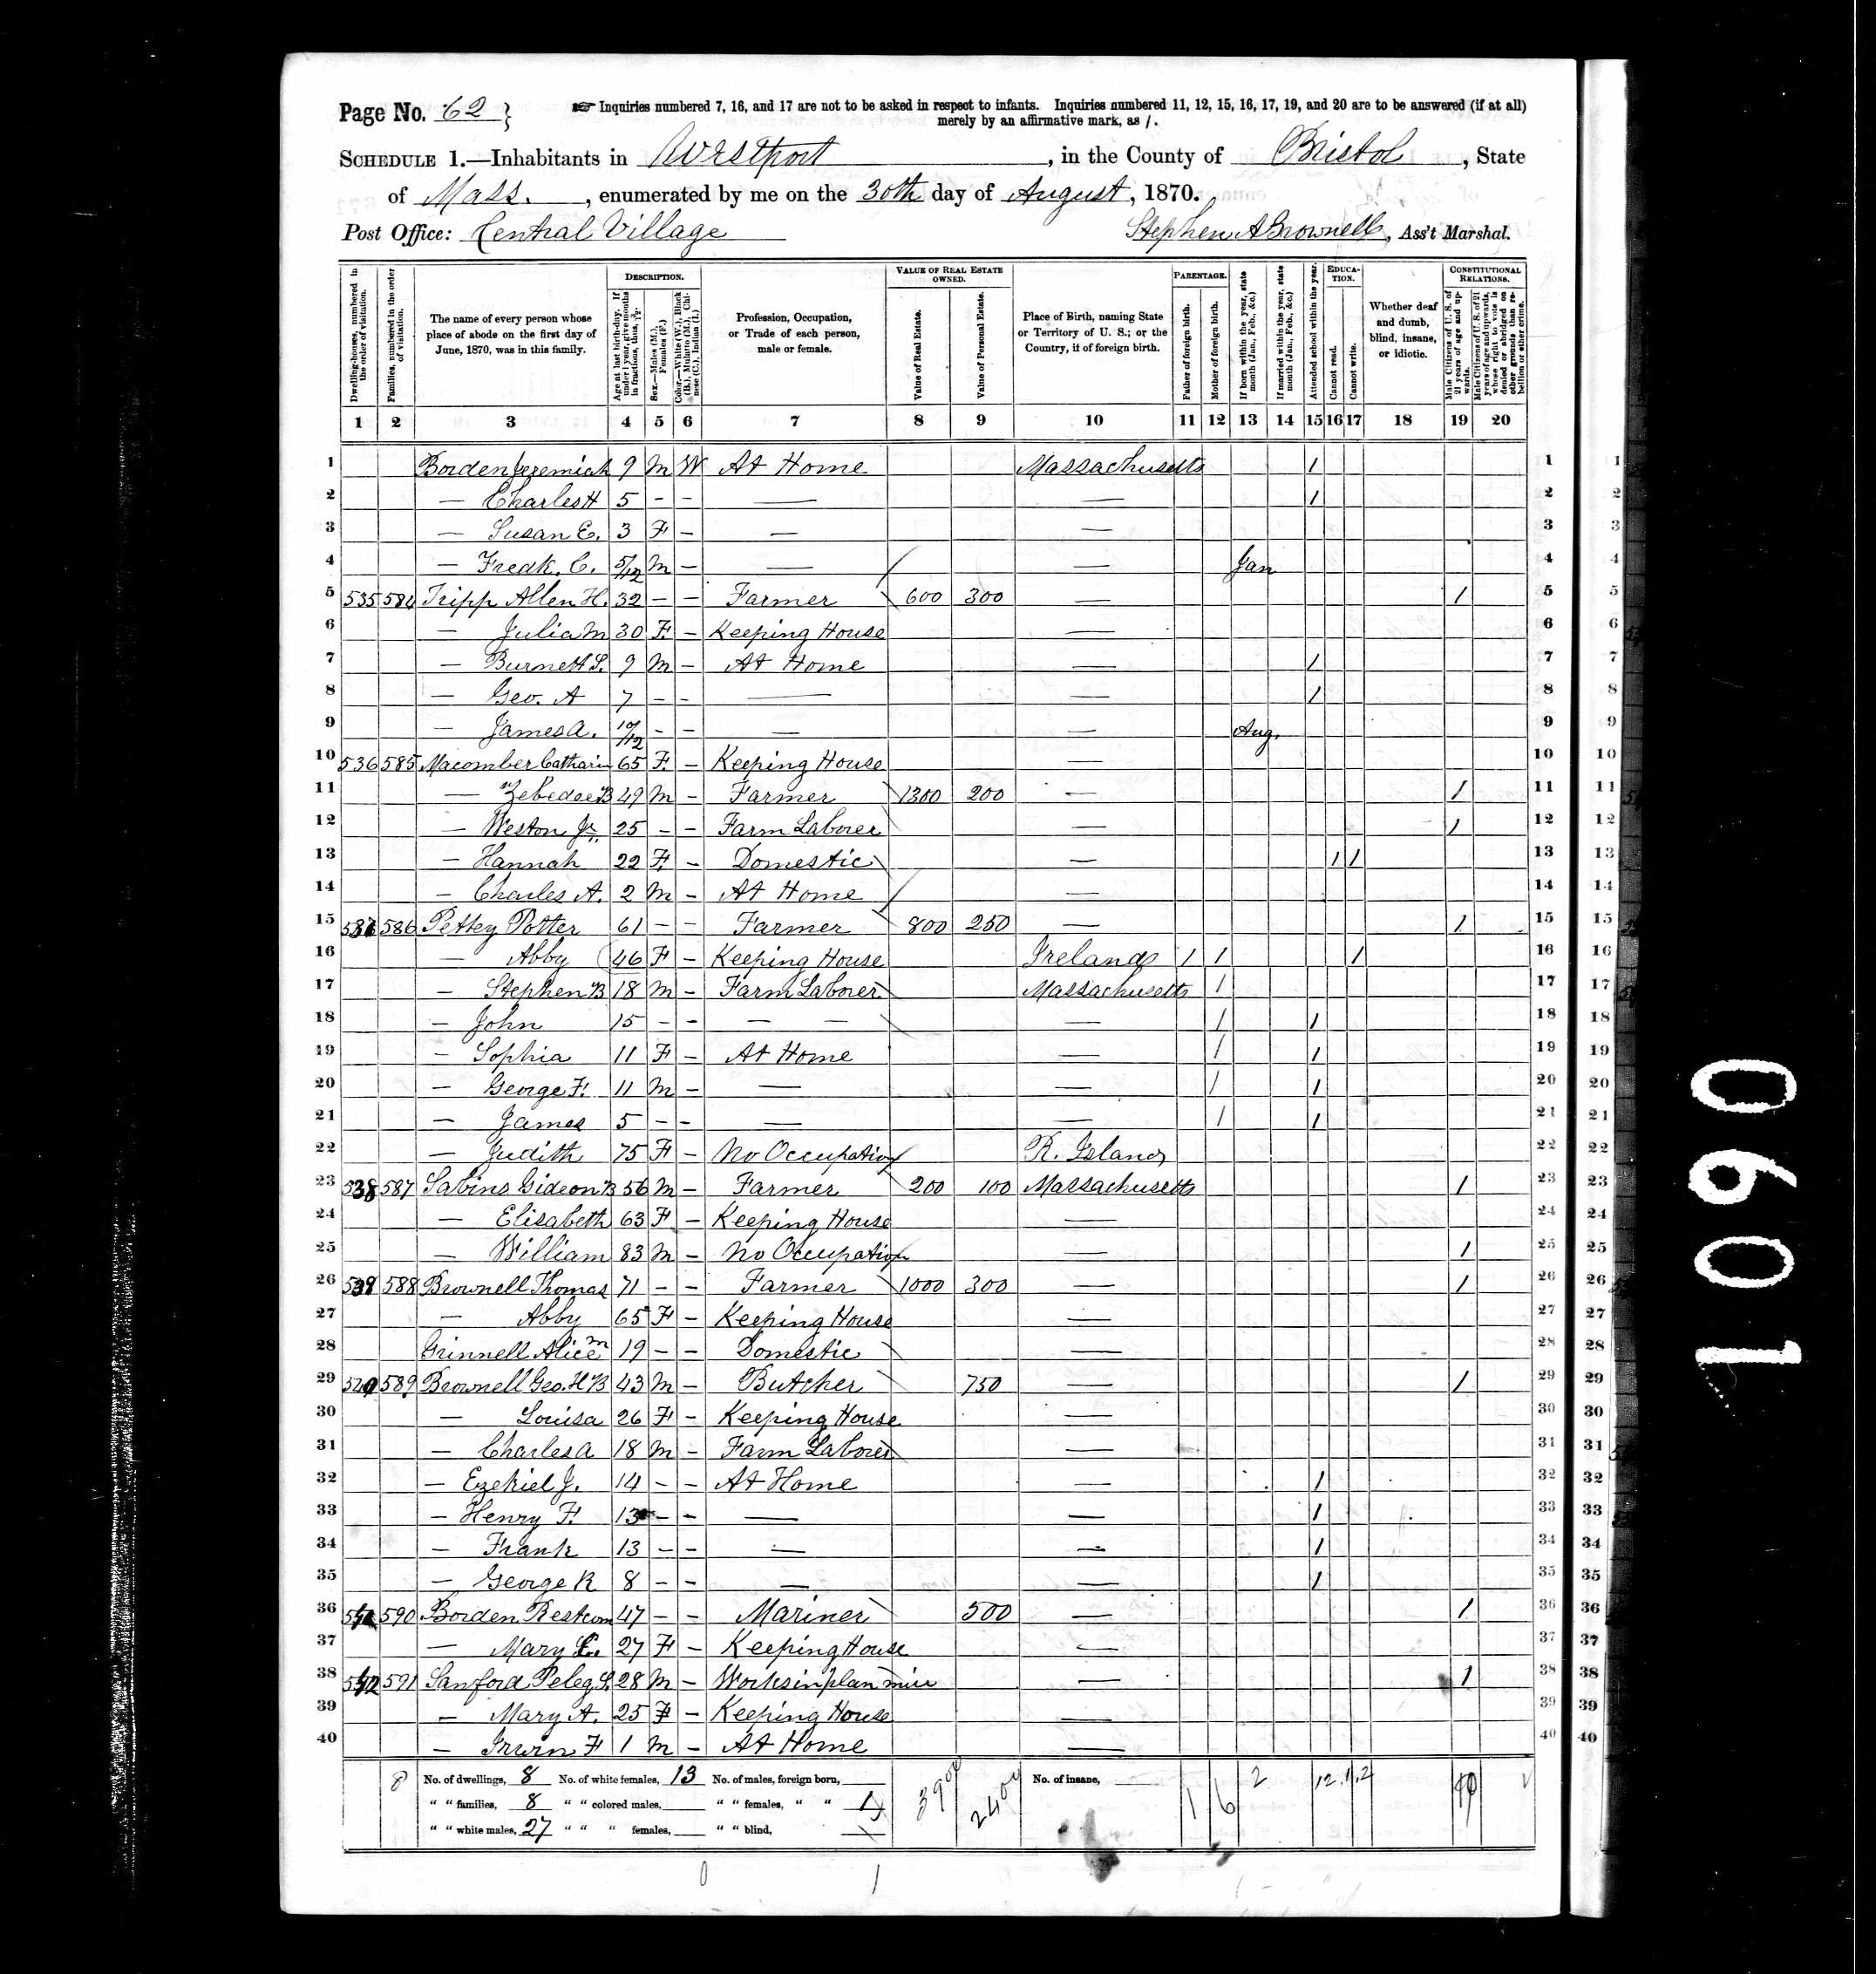 Page No. 62
☞ Inquiries numbered 7, 16, and 17 are not to be asked in respect to infants. Inquiries numbered 11, 12, 15, 16, 17, 19, and 20 are to be answered (if at all)
merely by an affirmative mark, as /.
SCHEDULE 1.—Inhabitants in Westport, in the County of Bristol, State
of Mass., enumerated by me on the 30th day of August, 1870.
Post Office: Central Village Stephen A Brownell, Ass't Marshal.
Dwelling-houses, numbered in the order of visitation.
Families, numbered in the order of visitation.
The name of every person whose place of abode on the first day of June, 1870, was in this family.
DESCRIPTION.
Age at last birth-day. If under 1 year, give months in fractions, thus, 3/12.
Sex.—Males (M.), Females (F.)
Color.—White (W.), Black (B.), Mulatto (M.), Chinese (C.), Indian (I.)
Profession, Occupation, or Trade of each person, male or female.
VALUE OF REAL ESTATE OWNED.
Value of Real Estate.
Value of Personal Estate.
Place of Birth, naming State or Territory of U. S.; or the Country, if of foreign birth.
PARENTAGE.
Father of foreign birth.
Mother of foreign birth.
If born within the year, state month (Jan., Feb., &c.)
If married within the year, state month (Jan., Feb., &c.)
Attended school within the year.
EDUCATION.
Cannot read.
Cannot write.
Whether deaf and dumb, blind, insane, or idiotic.
CONSTITUTIONAL RELATIONS.
Male Citizens of U. S. of 21 years of age and upwards.
Male Citizens of U. S. of 21 years of age and upwards, whose right to vote is denied or abridged on other grounds than rebellion or other crime.
1 2 3 4 5 6 7 8 9 10 11 12 13 14 15 16 17 18 19 20
1 Borden Jeremiah 9 M W At Home Massachusetts / 1 1
2 — Charles H 5 - - — — / 2 2
3 — Susan E. 3 F - — — 3 3
4 — Fredk. C. 5/12 M - — — Jan 4 4
5 535 584 Tripp Allen H. 32 - - Farmer 600 300 — / 5 5
6 — Julia M 30 F. - Keeping House — 6 6
7 — Burnett S. 9 M - At Home — / 7 7
8 — Geo. A 7 - - — — / 8 8
9 — James A. 10/12 - - — — Aug. 9 9
10 536 585 Macomber Catharin 65 F. - Keeping House — 10 10
11 — Zebedee B 49 M - Farmer 1300 200 — / 11 11
12 — Weston Jr. 25 - - Farm Laborer — / 12 12
13 — Hannah 22 F. - Domestic — / / 13 13
14 — Charles A. 2 M - At Home — 14 14
15 537 586 Pettey Potter 61 - - Farmer 800 250 — / 15 15
16 — Abby 46 F - Keeping House Ireland / / / 16 16
17 — Stephen B 18 M - Farm Laborer Massachusetts / 17 17
18 — John 15 - - — — — / / 18 18
19 — Sophia 11 F - At Home — / / 19 19
20 — George F. 11 M - — — / / 20 20
21 — James 5 - - — — / / 21 21
22 — Judith 75 F - No Occupation R. Island 22 22
23 538 587 Sabins Gideon B 56 M - Farmer 200 100 Massachusetts / 23 23
24 — Elisabeth 63 F - Keeping House — 24 24
25 — William 83 M - No Occupation — / 25 25
26 539 588 Brownell Thomas 71 - - Farmer 1000 300 — / 26 26
27 — Abby 65 F - Keeping House — 27 27
28 Grinnell Alice M 19 - - Domestic — 28 28
29 540 589 Brownell Geo. H B 43 M - Butcher 750 — / 29 29
30 — Louisa 26 F - Keeping House — 30 30
31 — Charles A 18 M - Farm Laborer — 31 31
32 — Ezekiel J. 14 - - At Home — / 32 32
33 — Henry F. 13 - - — — / 33 33
34 — Frank 13 - - — — / 34 34
35 — George R 8 - - — — / 35 35
36 541 590 Borden Restcom 47 - - Mariner 500 — / 36 36
37 — Mary E. 27 F - Keeping House — 37 37
38 542 591 Sanford Peleg S. 28 M - Works in plan mill — / 38 38
39 — Mary A. 25 F - Keeping House — 39 39
40 — Irwin F 1 M - At Home — 40 40
8 No. of dwellings, 8 No. of white females, 13 No. of males, foreign born, 3900 2400 No. of insane, 1 6 2 12 1 2 10
" " families, 8 " " colored males, " " females, " " 1
" " white males, 27 " " " females, " " blind,
0 1
0601